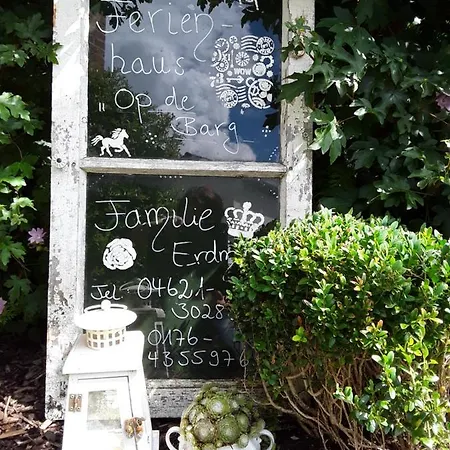 Ferien-
haus
"Op de
Barg
WOW
Familie
Tel. 04621-
3028
0176-
4355976